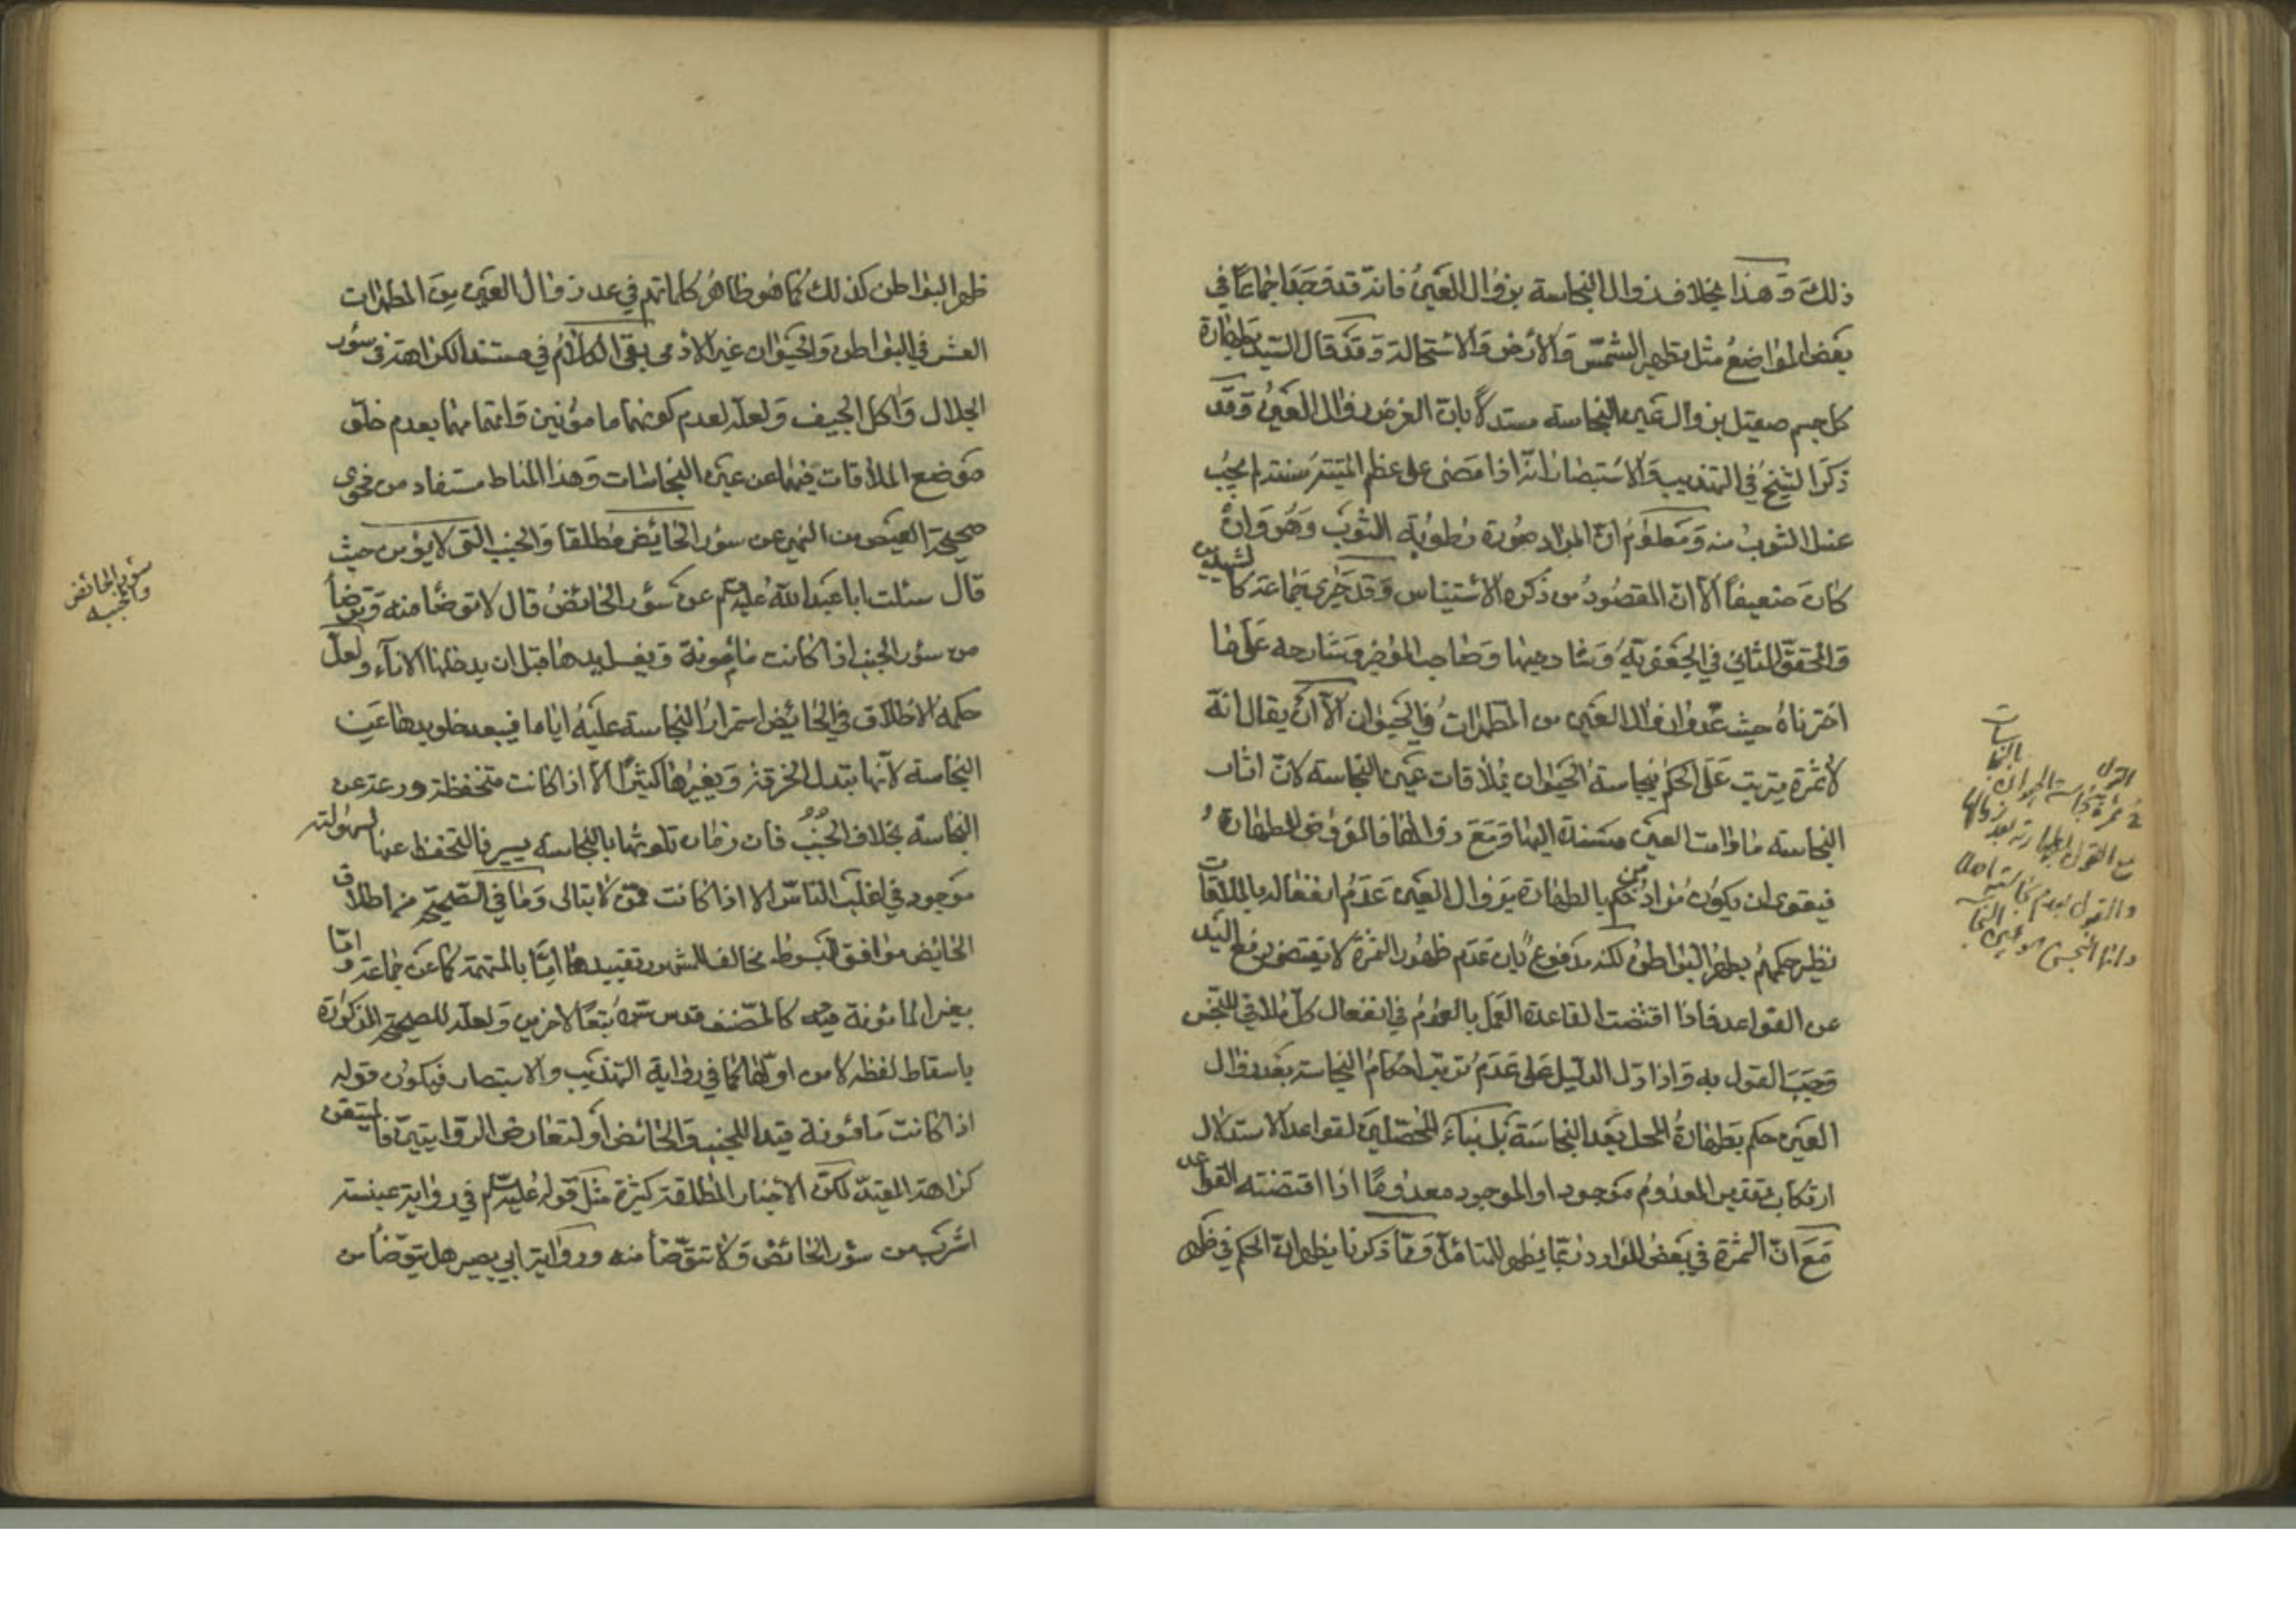 ذلك وهذا بخلاف زوال النجاسة بزوال العين فانه قد وجد اجماعا في
بعض المواضع مثل تطهير الشمس والأرض والاستحالة وقد قال السيد بطهارة
كل جسم صيقل بزوال عين النجاسة مستدلا بان الغرض زوال العين وقد
ذكر الشيخ في التهذيب والاستبصار انه اذا مضى على عظم الميت سنة لم يجب
غسل الثوب منه ومعلوم ان المراد صورة رطوبة الثوب وهو وان
كان ضعيفا الا ان المقصود من ذكره الاستيناس وقد جرى جماعة كالشهيدين
والمحقق الثاني في الجعفرية وشارحيها وصاحب الموجز وشارحه على ما
اخترناه حيث عدوا زوال العين من المطهرات في الحيوان الا ان يقال انه
لا ثمرة يترتب على الحكم بنجاسة الحيوان بملاقات عين النجاسة لان اثار
النجاسة ما دامت العين مستندة اليها ومع زوالها فالمفروض الطهارة
فيقوى ان يكون مراد من حكم بالطهارة بزوال العين عدم انفعاله بالملاقات
نظير حكمهم بطهر البواطن لكنه مدفوع بان عدم ظهور الثمرة لا يقتضي رفع اليد
عن القواعد فاذا اقتضت القاعدة العمل بالعموم في انفعال كل ملاقي للنجس
وجب القول به واذا دل الدليل على عدم ترتب احكام النجاسة بعد زوال
العين حكم بطهارة المحل بعد النجاسة بل بناء المحصلين لقواعد الاستدلال
ارتكاب تقدير المعدوم موجودا والموجود معدوما اذا اقتضته القواعد
مع ان الثمرة في بعض الموارد ربما يظهر للمتامل ومما ذكرنا يظهر ان الحكم في ظهر
القول
ثمرة نجاسة الحيوان بالنجاسات
مع القول بطهارته بعد زوالها
والقول بعدم نجاسته اصلا
وانما النجس هو عين النجاسة
طهر البواطن كذلك كما هو ظاهر كلماتهم في عد زوال العين من المطهرات
العشر في البواطن والحيوان غير الادمى بقى الكلام في مستند الكراهة في سؤر
الجلال واكل الجيف ولعله لعدم كونهما مامونين واتهامهما بعدم خلو
موضع الملاقات فيهما عن عين النجاسات وهذا المناط مستفاد من فحوى
صحيحة العيص من النهي عن سؤر الحائض مطلقا والجنب التي لا يؤمن حيث
قال سئلت ابا عبد الله عليه السلم عن سؤر الحائض قال لا توضأ منه وتوضأ
من سؤر الجنب اذا كانت مأمونة وتغسل يدها قبل ان يدخلها الاناء ولعل
حكمة الاطلاق في الحائض استمرار النجاسة عليه اياما فيبعد خلو يدها عن
النجاسة لأنها تبدل الخرقة وتغيرها كثيرا الا اذا كانت متحفظة ورعة عن
النجاسة بخلاف الجنب فان زمان تلوثها بالنجاسة يسير فالتحفظ عنها لسهولته
موجود في اغلب الناس الا اذا كانت ممن لا يتالى وما في الصحيحة من اطلاق
الحائض موافق للمبسوط مخالف للمشهور تقييدها اما بالمتهمة كما عن جماعة واما
بغير المأمونة فيه كالمصنف قدس سره تبعا لاخرين ولعله للصحيحة المذكورة
باسقاط لفظة لا من اولها كما في رواية التهذيب والاستبصار فيكون قوله
اذا كانت مأمونة قيدا للجنب والحائض او لتعارض الروايتين فالمتيقن
كراهة المقيد لكن الاخبار المطلقة كثيرة مثل قوله عليه السلم في رواية عنبسة
اشرب من سؤر الحائض ولا تتوضأ منه ورواية ابي بصير هل يتوضأ من
سؤر الحائض
والجنب